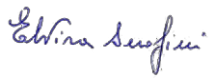 Elvira Serafini